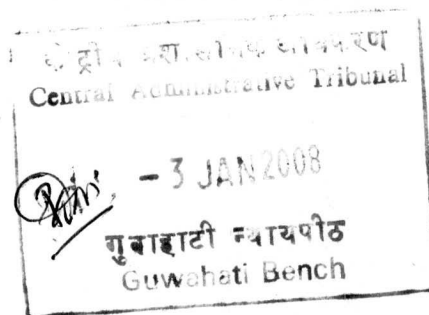 केन्द्रीय प्रशासनिक अधिकरण
Central Administrative Tribunal
- 3 JAN 2008
गुवाहाटी न्यायपीठ
Guwahati Bench